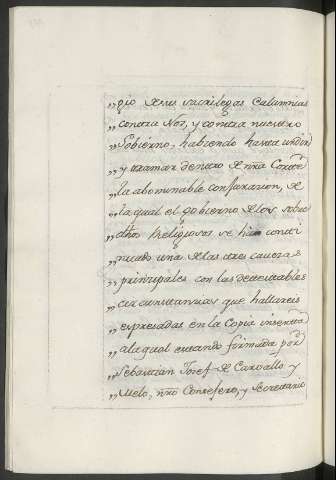 „gio de sus sacrilegas Calumnias
„contra Nos, y contra nuestro
„Gobierno, habiendo hasta urdir
„y tramar dentro de nrã Corte
„la abominable conjuracion, de
„la qual el gobierno de los sobre
„dhos Religiosos se ha consti
„tuado una de las tres cavezas
„principales con las detestables
„circunstancias que hallareis
„expresadas en la Copia inserta
„a la qual estando firmada por
„Sebastian Josef de Carvallo y
„Melo, nrõ Consejero, y Secretario